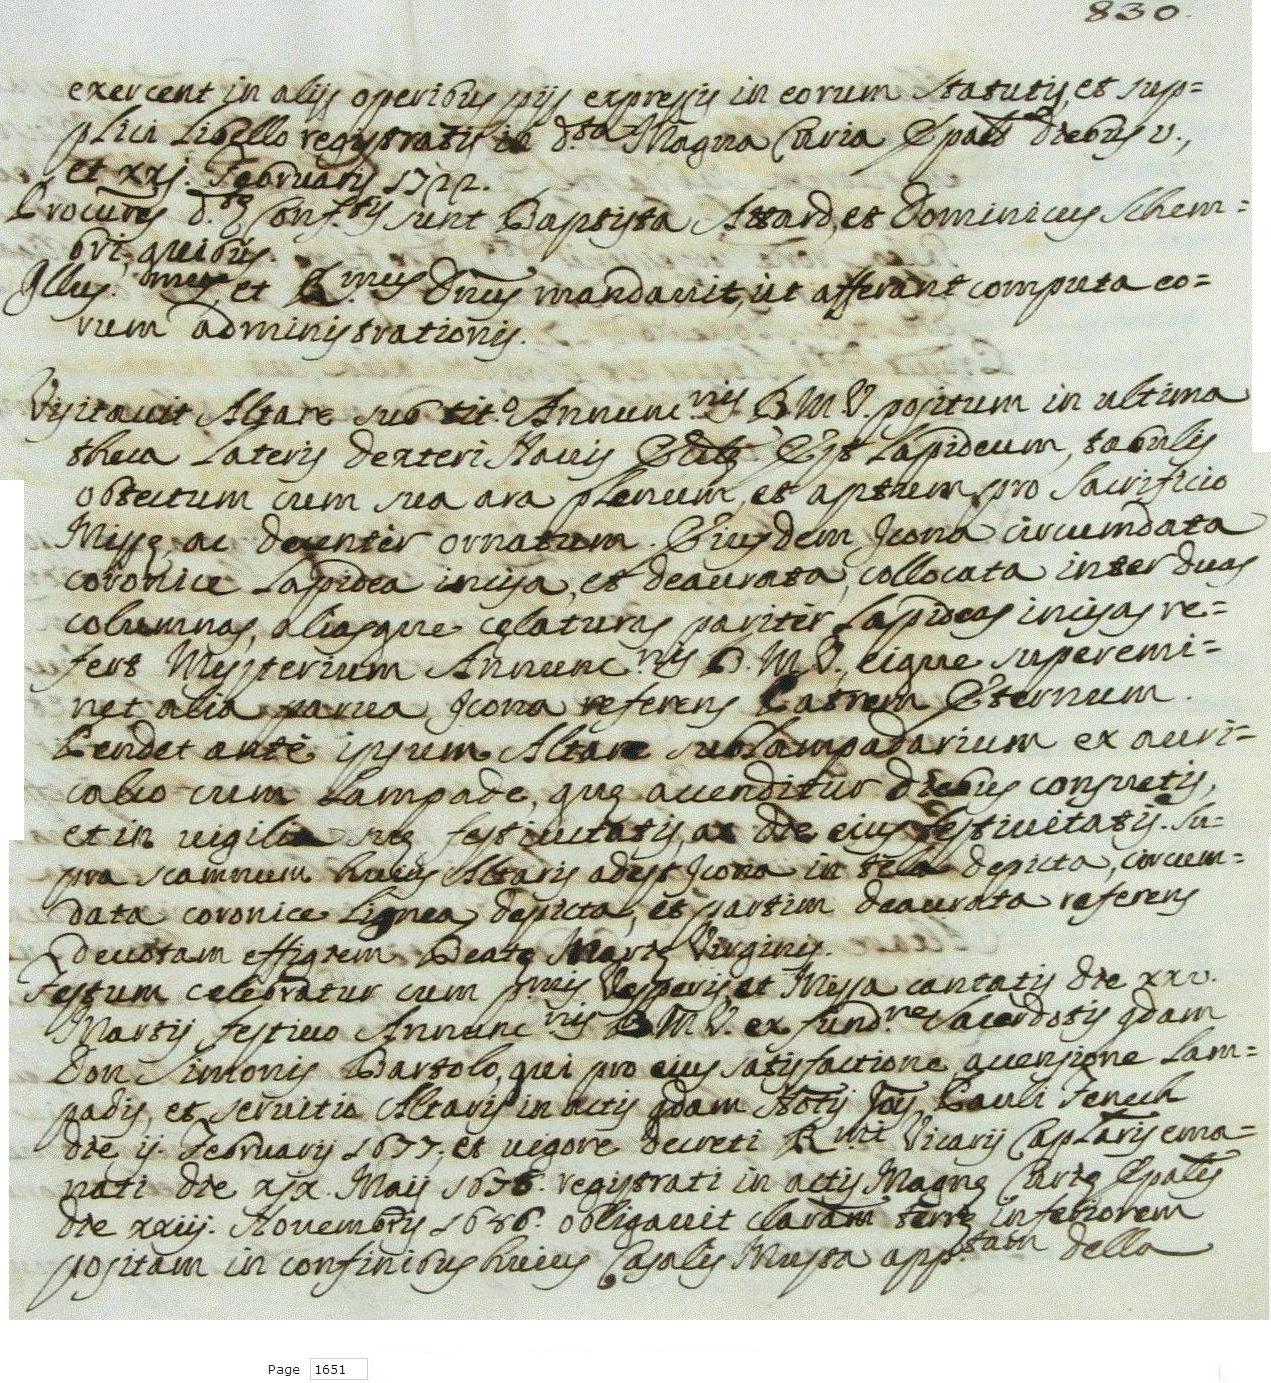 830.
exercent in alijs operibus pijs expressis in eorum statutis, et sup=
plici Libello registratis in d.ta Magna Curia Epali diebus v.,
et xxj. Februarij 1722.
Procures d.ę Conf.tis sunt Baptista Attard, et Dominicus Schem=
bri, quibus.
Illus.mus, et R.mus Dnus mandavit, ut afferant computa eo=
rum administrationis.
Visitavit Altare sub tit.o Annunc.nis B.M.V. positum in ultima
theca Lateris dexteri Navis Eccl. Est Lapideum, tabulis
obtectum cum sua ara plenum, et aptum pro Sacrificio
Missę, ac decenter ornatum. Eiusdem Icona circumdata
coronice Lapidea incisa, et deaurata, collocata inter duas
columnas, aliasque cęlaturas pariter Lapideas incisas re=
fert Mysterium Annunc.nis B.M.V., eique superemi=
net alia parva Icona referens Patrem Ęternum.
Pendet ante ipsum Altare sublampadarium ex auri=
calco cum Lampade, quę accenditur diebus consuetis,
et in vigilia suę festivitatis, ac die eius festivitatis. Su=
pra scamnum huius Altaris adest Icona in tela depicta, circum=
data coronice Lignea depicta, et partim deaurata referens
devotam effigiem Beatę Marię Virginis.
Festum celebratur cum p.mis Vesperis, et Missa cantatis die xxv.
Martij festivo Annunc.nis B.M.V. ex fund.ne Sacerdotis qdam
Don Simonis Bartolo, qui pro eius satisfactione, accensione Lam=
padis, et servitio Altaris in actis qdam Notij Jois Pauli Fenech
die ij. Februarij 1677, et vigore decreti R.mi Vicarij Caplaris ema=
nati die xjx. Maij 1678. registrati in actis Magnę Curię Epalis
die xxiij. Novembris 1686. obligavit clavam terrę inferiorem
positam in confinibus huius Casalis Musta app.tam della
Page 1651